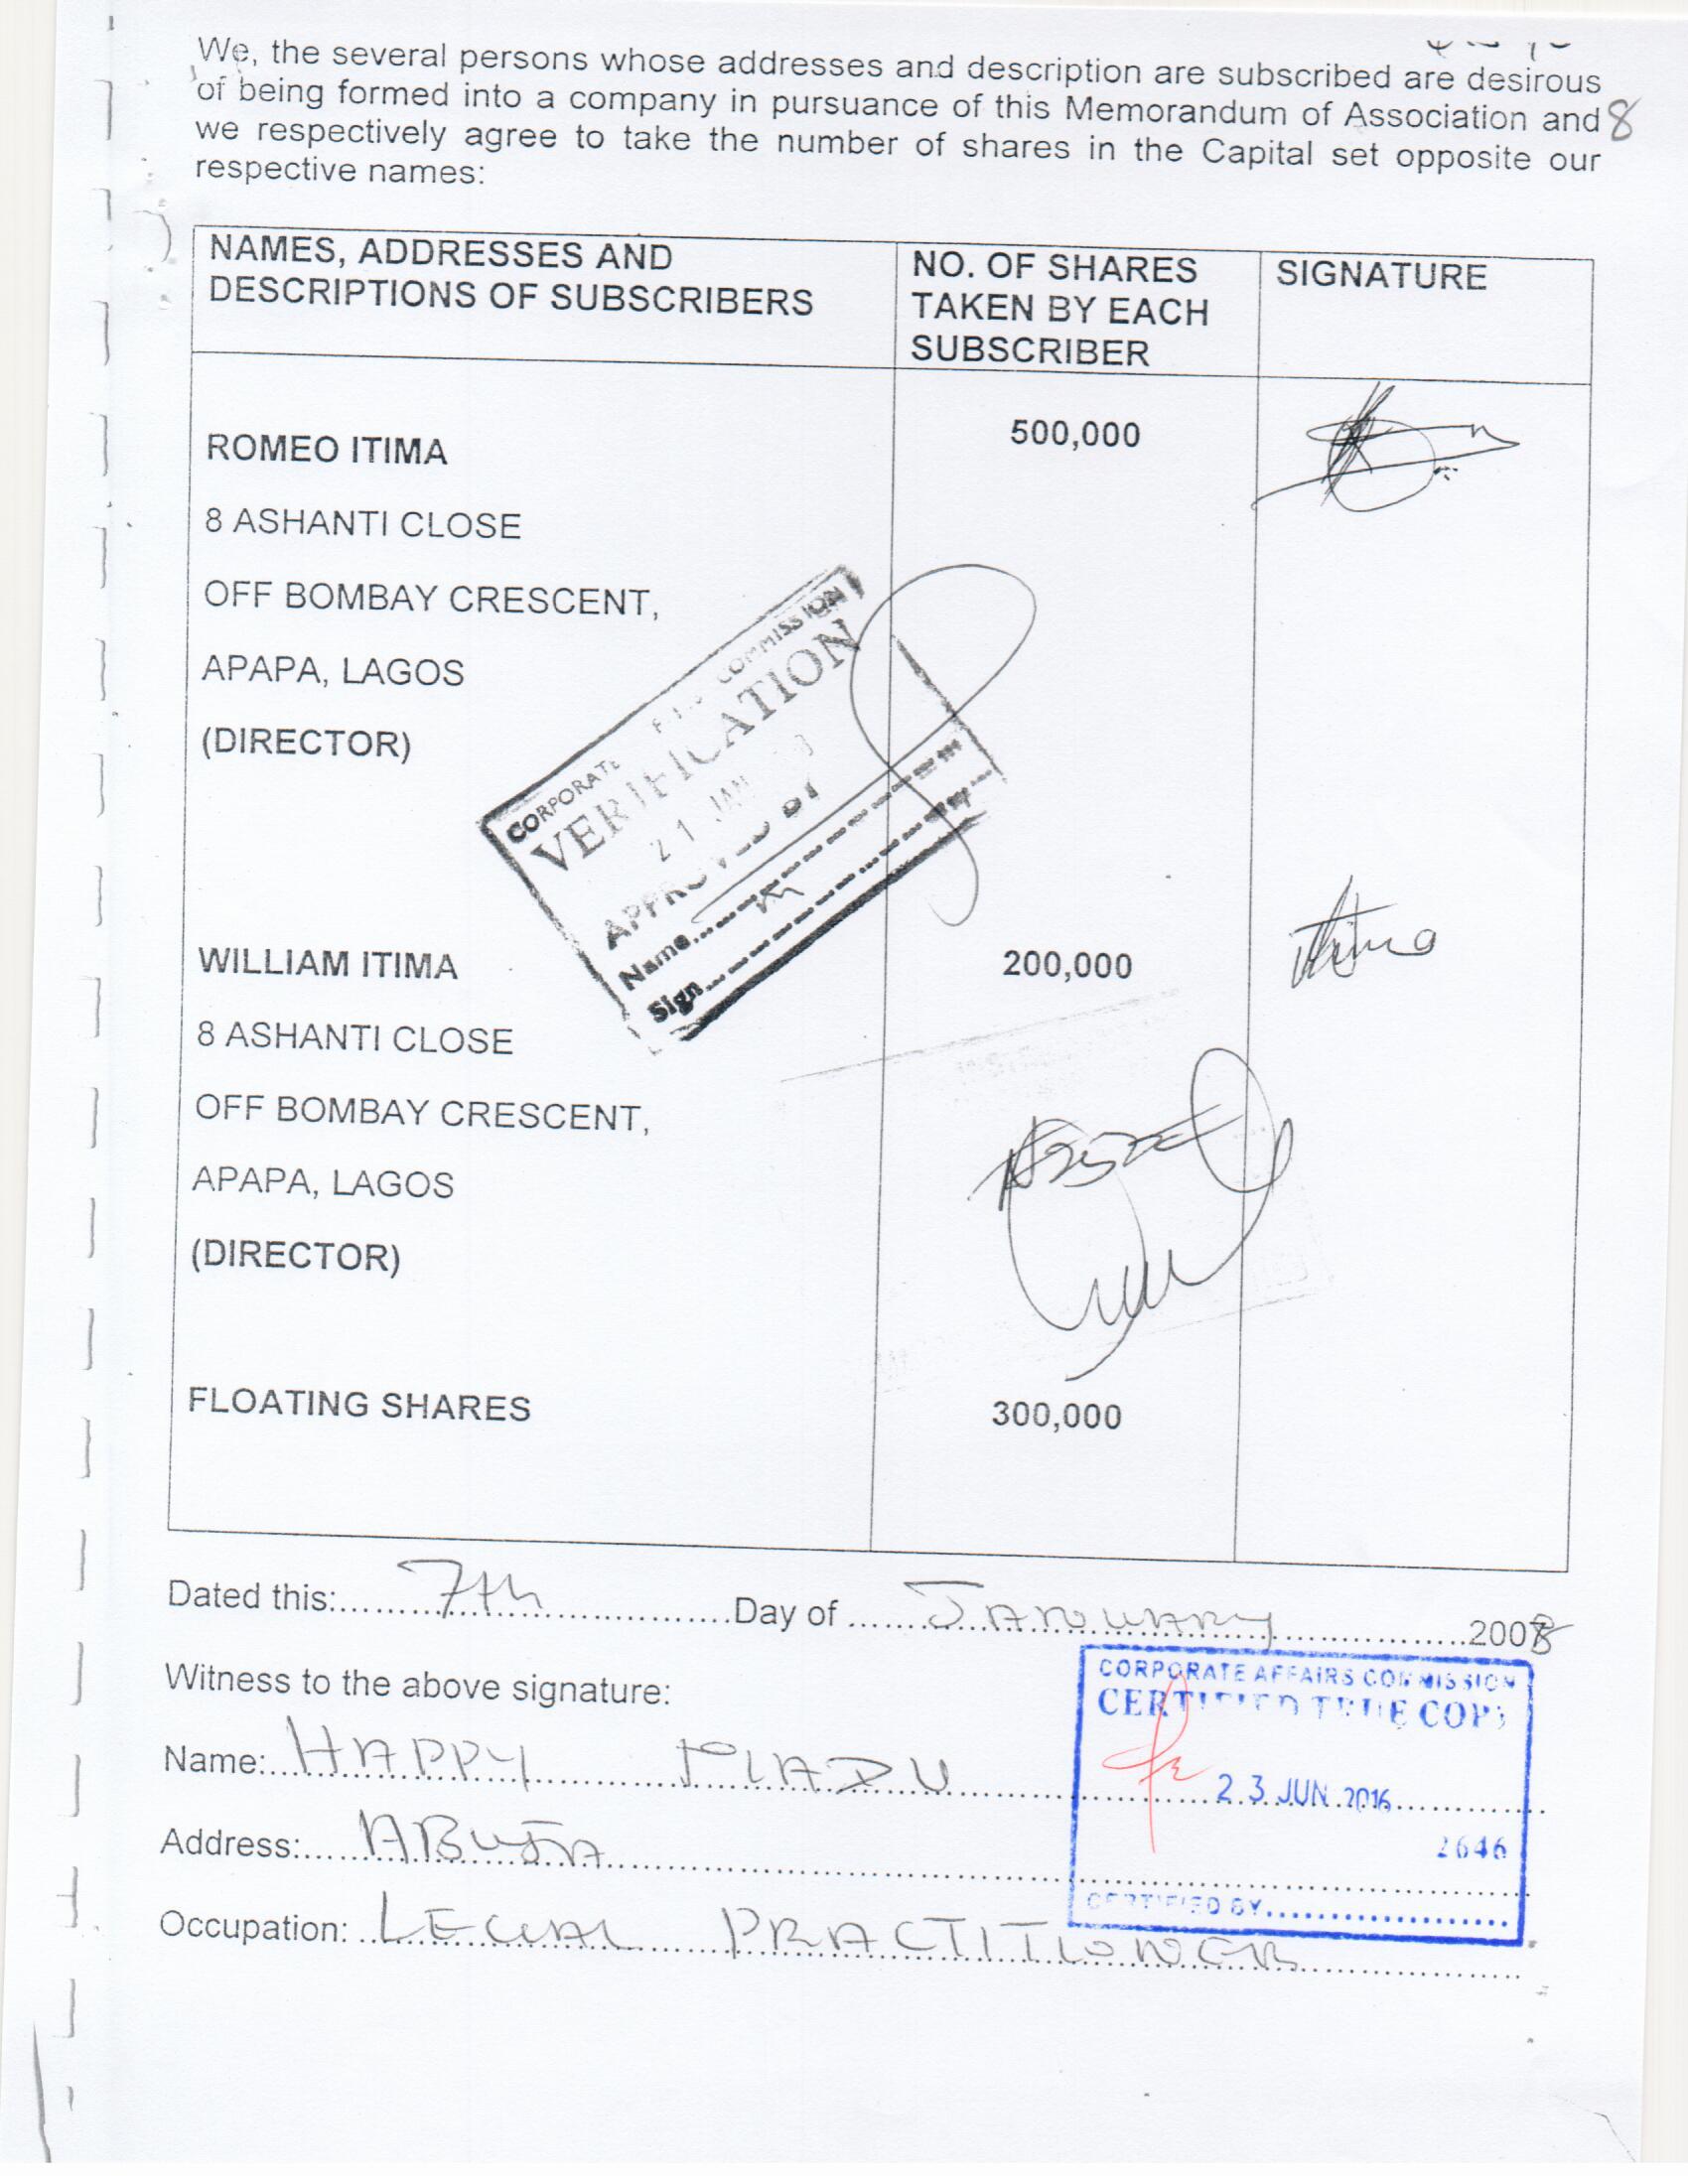 We, the several persons whose addresses and description are subscribed are desirous
of being formed into a company in pursuance of this Memorandum of Association and 8
we respectively agree to take the number of shares in the Capital set opposite our
respective names:
NAMES, ADDRESSES AND
DESCRIPTIONS OF SUBSCRIBERS
NO. OF SHARES
TAKEN BY EACH
SUBSCRIBER
SIGNATURE
ROMEO ITIMA
500,000
8 ASHANTI CLOSE
OFF BOMBAY CRESCENT,
APAPA, LAGOS
(DIRECTOR)
CORPORATE COMMISSION
VERIFICATION
21 JAN
APPROVED BY
Name
Sign
WILLIAM ITIMA
200,000
Itima
8 ASHANTI CLOSE
OFF BOMBAY CRESCENT,
APAPA, LAGOS
(DIRECTOR)
FLOATING SHARES
300,000
Dated this: 7th Day of JANUARY 2008
Witness to the above signature:
Name: HAPPY
Address: ABUJA
Occupation: LEGAL PRACTITIONER
CORPORATE AFFAIRS COMMISSION
CERTIFIED TRUE COPY
23 JUN 2016
2646
CERTIFIED BY